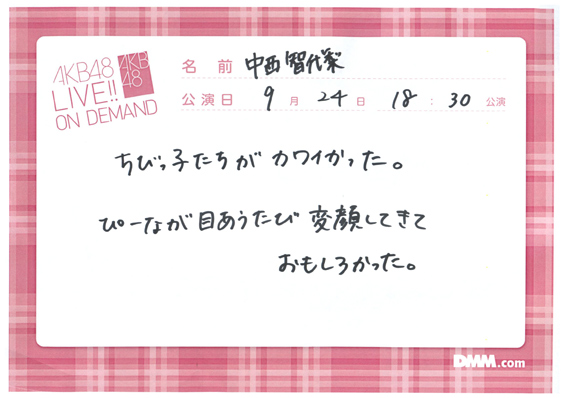 AKB48
LIVE!!
ON DEMAND
AKB
48
名前 中西智代梨
公演日 9月24日 18:30公演
ちびっ子たちが カワイかった。
ぴーなが目あうたび 変顔してきて
おもしろかった。
DMM.com